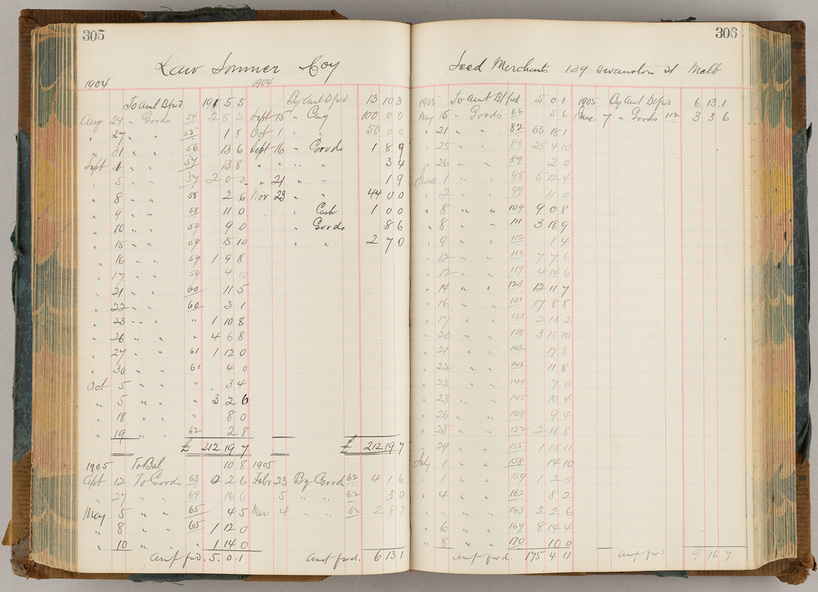 305
Law Somner Coy
1904 1904
To Amt Bfwd 191 5 5 By Amt Bfwd 13 10 3
Aug 24 " Goods 54 2 8 2 Sept 15 " Cug 100 0 0
" 27 " " 55 1 8 Oct 1 " " 50 0 0
" 31 " " 56 13 6 Sept 16 " Goods 1 8 9
Sept 1 " " 57 13 8 " " " " 3 4
" 5 " " 57 2 0 0 " 21 " " 1 9
" 8 " " 58 2 6 Nov 23 " " 44 0 0
" 9 " " 58 11 0 " Cash 1 0 0
" 10 " " 59 9 0 " Goods 8 6
" 15 " " 59 15 10 " " 2 7 0
" 16 " " 59 1 9 8
" 17 " " 59 4 10
" 21 " " 60 11 5
" 22 " " 60 3 1
" 23 " " " 1 10 8
" 26 " " " 4 6 8
" 27 " " 61 1 12 0
" 30 " " 61 4 0
Oct 5 " " " 3 4
" 5 " " " 3 2 6
" 18 " " " 8 0
" 19 " " 62 2 8
£ 212 19 7 £ 212 19 7
1905 To Bal 10 8 1905
Apt 12 To Goods 63 0 2 6 Febr 23 By Goods 62 4 1 6
" 27 " " 64 16 6 5 " " 62 3 0
May 5 " " 65 4 5 Mar 4 " " 62 2 8 7
" 8 " " 65 1 12 0
" 10 " " " 1 14 0
Amt fwd. 5. 0. 1 Amt fwd. 6 13 1
306
Seed Merchants 139 Swanston St Melb
1905 To Amt Bfwd 5 0 1 1905 By Amt Bfwd 6. 13. 1
May 15 " Goods 86 5 6 June 7 " Goods 112 3 3 6
" 21 " " 87 65 18 1
" 25 " " 88 25 4 10
" 26 " " 89 2 0
June 1 " " 98 5 12 4
" 2 " " 99 11 0
" 8 " " 109 9 0 8
" 8 " " 111 3 18 9
" 9 " " 112 1 4
" 12 " " 116 7 7 6
" 12 " " 119 4 15 6
" 14 " " 123 12 11 7
" 16 " " 131 17 8 8
" 17 " " 2 13 2
" 20 " " 135 3 15 10
" 21 " " 17 5
" 22 " " 143 11 8
" 23 " " 144 7 0
" 25 " " 145 10 4
" 26 " " 148 9 4
" 28 " " 152 2 18 8
" 29 " " 155 1 15 11
July 1 " " 158 14 10
" 1 " " 159 1 2 11
" 4 " " 162 8 2
" " " 163 2 2 6
" 6 " " 167 8 14 4
" 8 " " 170 10 0
Amt fwd. 175 4 11 Amt fwd 9 16 7